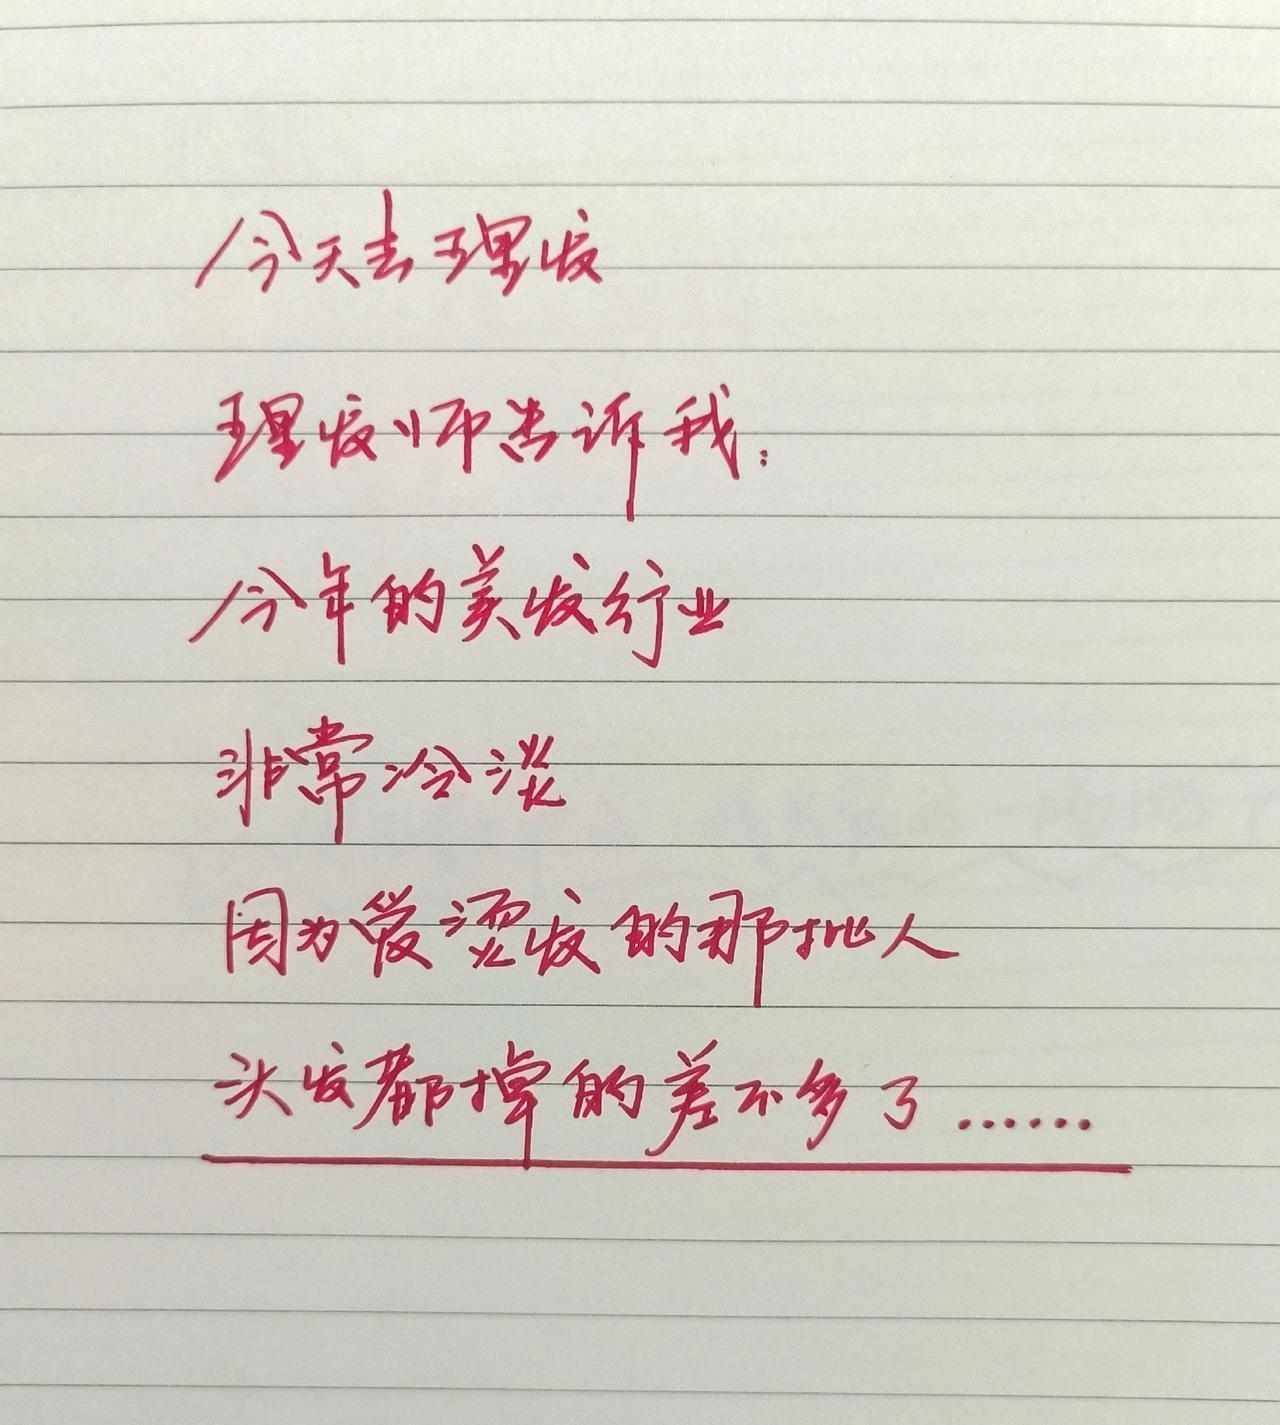 今天去理发
理发师告诉我：
今年的美发行业
非常冷淡
因为爱烫发的那批人
头发都掉的差不多了……